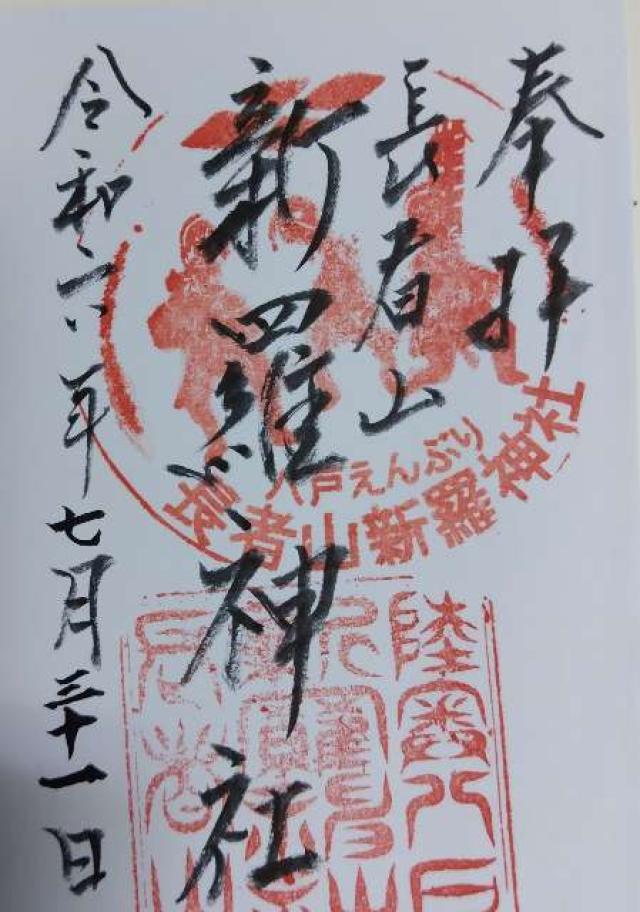 奉拝
長者山
新羅神社
令和六年七月三十一日
八戸えんぶり
長者山新羅神社
陸奥八戸